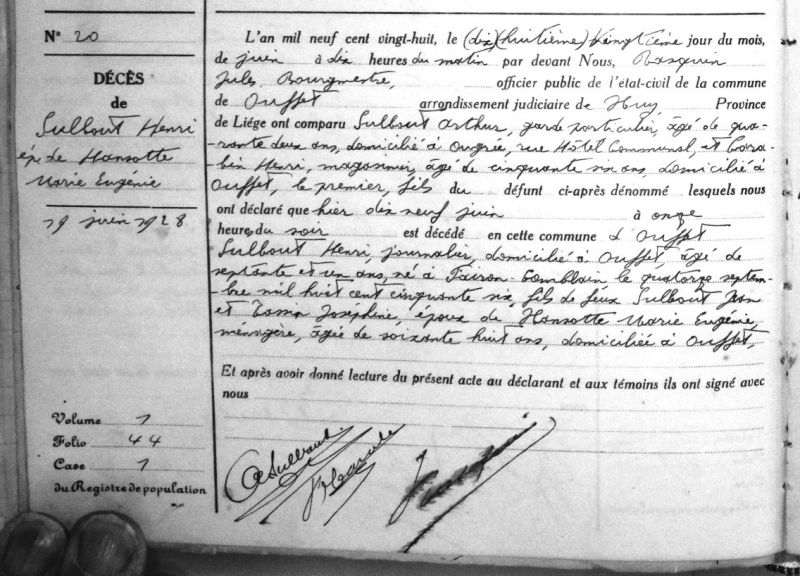 N° 20
DÉCÈS
de
Sulbout Henri
ép. de Hansotte
Marie Eugénie
19 juin 1928
Volume 1
Folio 44
Case 1
du Registre de population
L'an mil neuf cent vingt-huit, le (dix) (huitième) vingtième jour du mois,
de juin à dix heures du matin par devant Nous, Rasquin
Jules, Bourgmestre, officier public de l'état-civil de la commune
de Ouffet arrondissement judiciaire de Huy Province
de Liége ont comparu Sulbout Arthur, garde particulier, âgé de qua-
-rante deux ans, domicilié à Ougrée, rue Hôtel Communal, et
Henri, magasinier, âgé de cinquante six ans, domicilié à
Ouffet, le premier, fils du défunt ci-après dénommé lesquels nous
ont déclaré que hier dix neuf juin à onze
heure du soir est décédé en cette commune d'Ouffet
Sulbout Henri, journalier, domicilié à Ouffet, âgé de
septante et un ans, né à Comblain le quatorze septem-
-bre mil huit cent cinquante six, fils de feux Sulbout Jean
et Joséphine, époux de Hansotte Marie Eugénie,
ménagère, âgée de soixante huit ans, domiciliée à Ouffet,
Et après avoir donné lecture du présent acte au déclarant et aux témoins ils ont signé avec
nous
A Sulbout